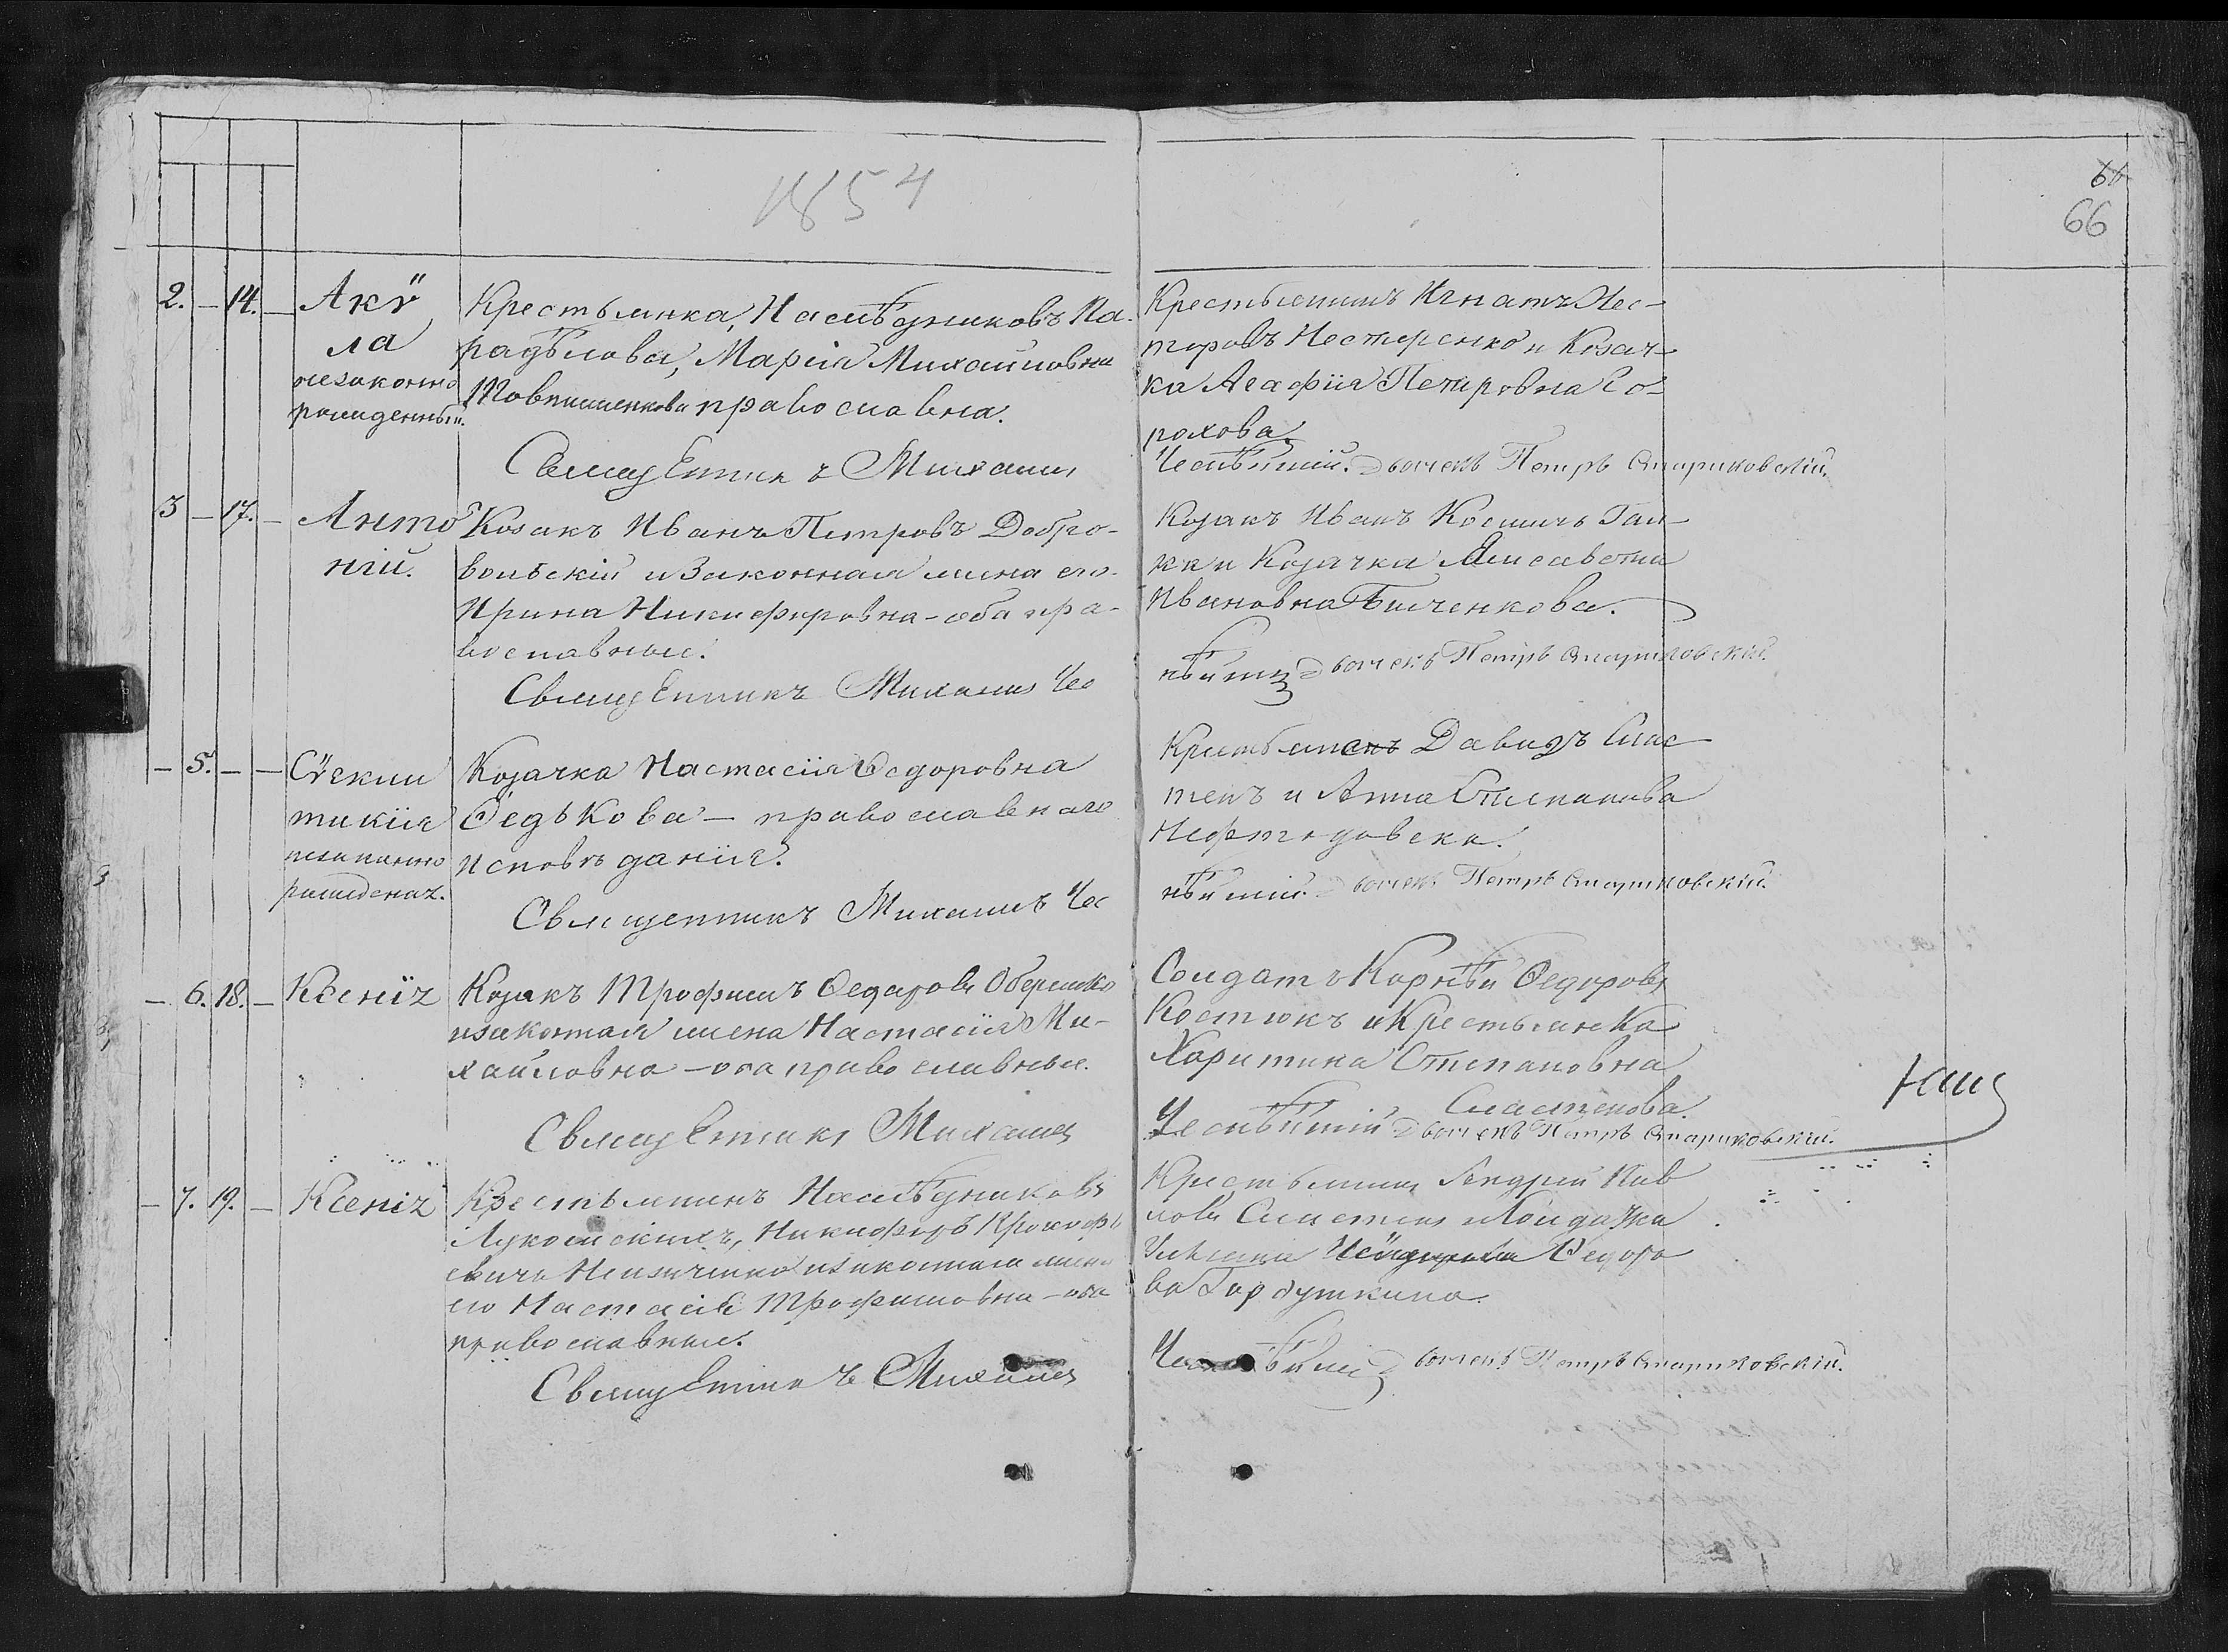 1854
66
66
2. – 14. –
Акѵ̈
ла
незаконно
рожденный.
Крестьянка, Наслѣдниковъ Ка-
радѣлова, Марія Михайловна
Товпишенкова православна.
Священникъ Михаилъ
Крестьянинъ Игнатъ Нес-
торовъ Нестеренко и Козач-
ка Агафія Петровна Го-
рохова.
Чеснѣйшій. Дьячекъ Петръ Стариковскій.
3 – 17. –
Анто
ній.
Козакъ Иванъ Петровъ Добро-
вольскій и Законная жена его
Ирина Никифоровна – оба пра-
вославные.
Священникъ Михаилъ Чес
Козакъ Иванъ Космичъ Гал-
ка и Козачка Елисавета
Ивановна Бѣлченкова.
нѣйшій Дьячекъ Петръ Стариковскій.
– 5. – –
Сѵнкли
тикія
незаконно
рожденна.
Козачка Настасія Ѳедоровна
Ѳедькова – православнаго
исповѣданія.
Священникъ Михаилъ Чес
Давидъ Слас
тенъ и Анна Степанова
нѣйшій Дьячекъ Петръ Стариковскій.
– 6. 18. –
Ксенія
Козакъ Трофимъ Ѳедоровъ
и законная жена Настасія Ми-
хайловна – оба православные.
Священникъ Михаилъ
Солдатъ Корнѣй Ѳедоровъ
Костюкъ и Крестьянка
Харитина Степановна
Сластенова.
Чеснѣйшій Дьячекъ Петръ Стариковскій.
– 7. 19. –
Ксенія
Крестьянинъ Наслѣдниковъ
Лукомскихъ, Никифоръ Прокофь
евичъ и законная жена
его Настасія Трофимовна – оба
православные.
Священникъ Михаилъ
Крестьянинъ Андрей Пав
ловъ Сластенъ и Солдатка
Ѳедоро
ва
Чеснѣйшій Дьячекъ Петръ Стариковскій.